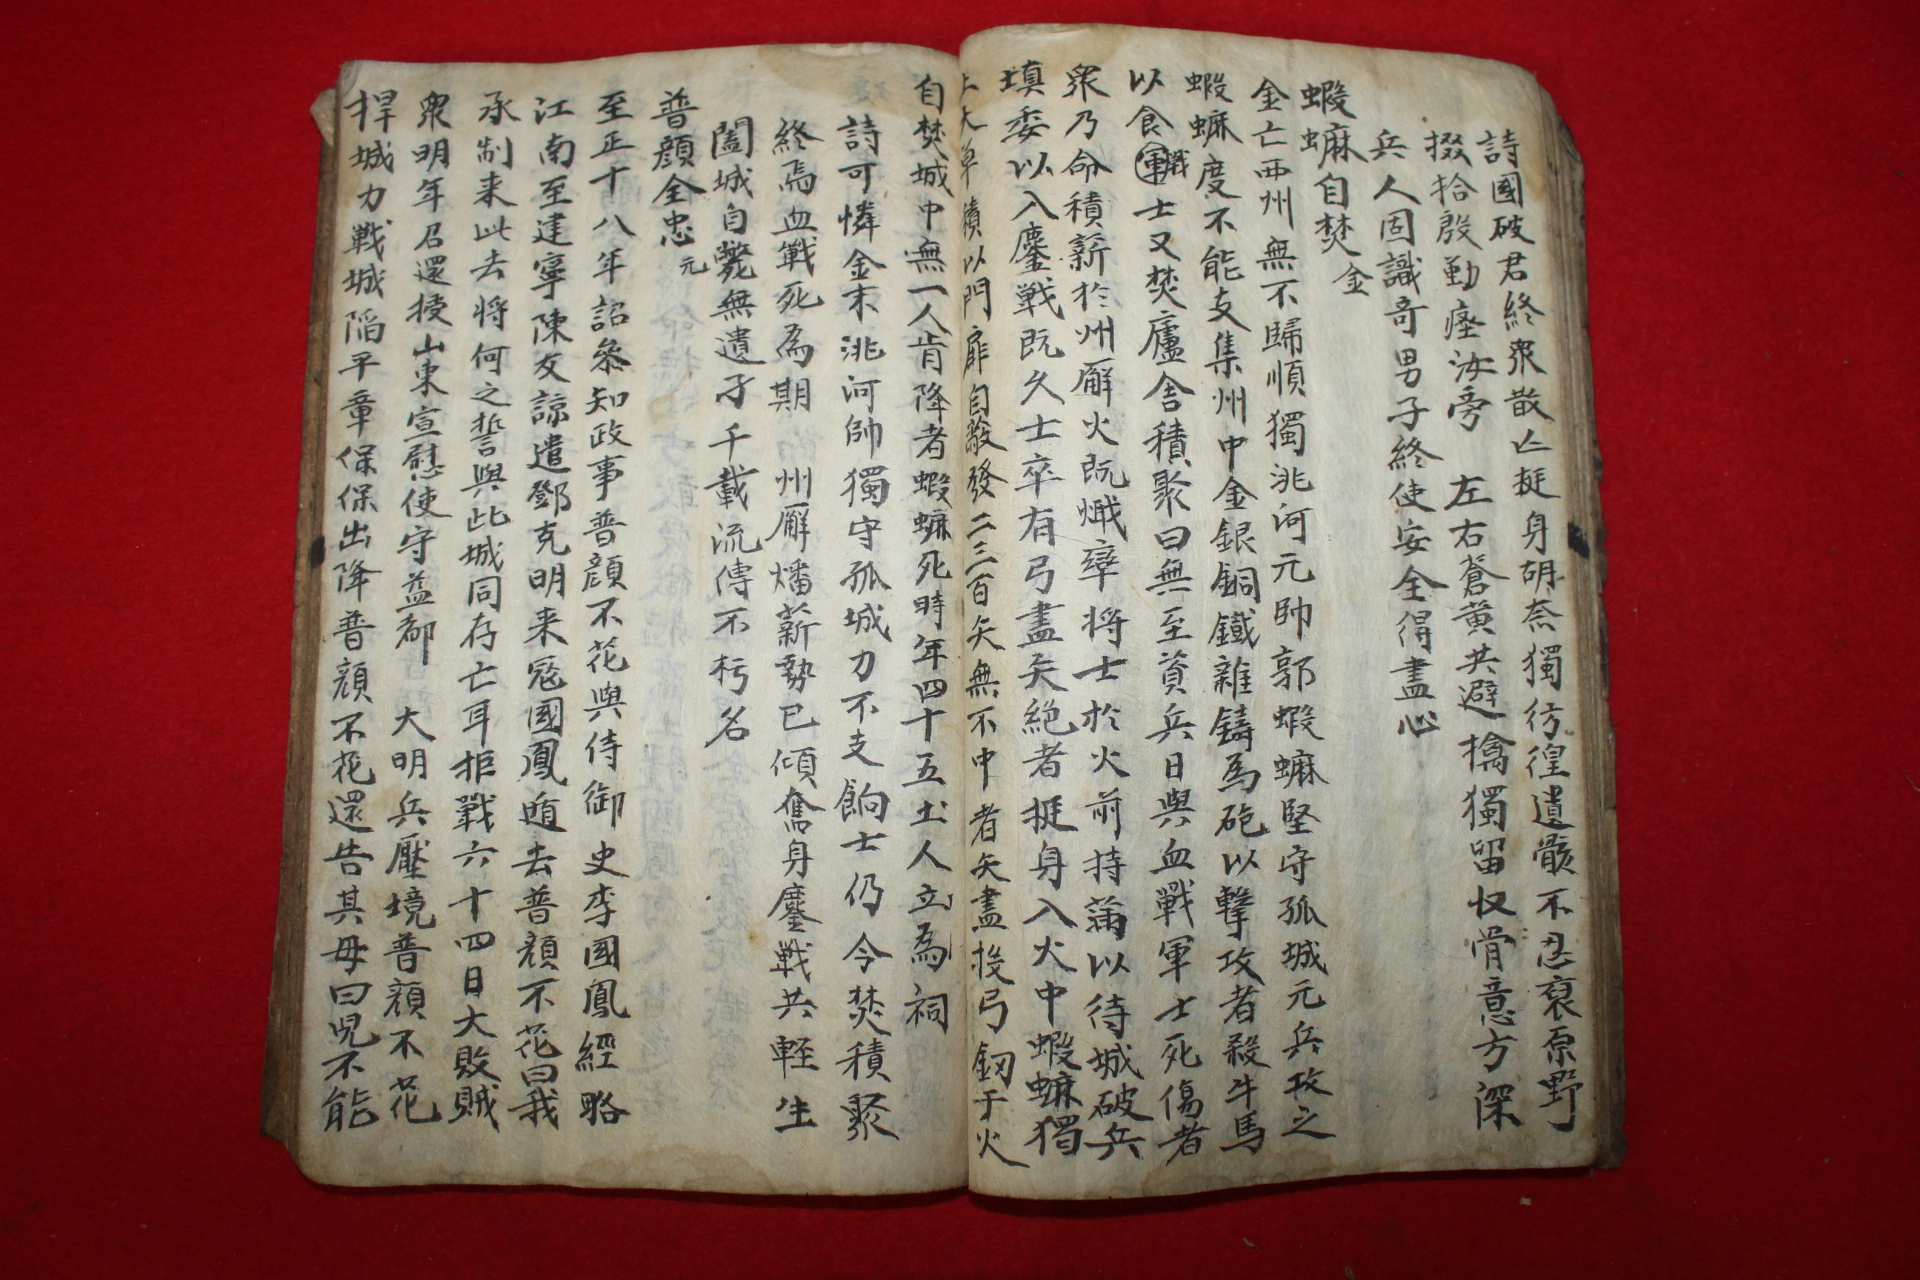 詩國破君終衆散亡挺身胡奈獨彷徨遺骸不忍裒原野
掇拾殷勤瘞汝旁 左右蒼黄共避擒獨留收骨意方深
兵人固識奇男子終使安全得盡心
蝦蟆自焚金
金亡西州無不歸順獨洮河元帥郭蝦蟆堅守孤城元兵攻之
蝦蟆度不能支集州中金銀銅鐵雜鑄爲砲以擊攻者殺牛馬
以食戰軍士又焚廬舍積聚曰無至資兵日與血戰軍士死傷者
衆乃命積薪於州廨火既熾率將士於火前持滿以待城破兵
塡委以入鏖戰旣久士卒有弓盡矢絶者挺身入火中蝦蟆獨
上大草積以門扉自蔽發二三百矢無不中者矢盡投弓釰于火
自焚城中無一人肯降者蝦蟆死時年四十五土人立爲祠
詩可憐金末洮河帥獨守孤城力不支餉士仍令焚積聚
終焉血戰死為期 州廨燔薪勢已傾奮身鏖戰共輕生
闔城自斃無遺孑千載流傳不朽名
普顔全忠元
至正十八年詔叅知政事普顔不花與侍御史李國鳳經略
江南至建寧陳友諒遣鄧克明来冦國鳳遁去普顔不花曰我
承制来此去将何之誓與此城同存亡耳拒戰六十四日大敗賊
衆明年召還授山東宣慰使守益都 大明兵壓境普顔不花
捍城力戰城陥平章保保出降普顔不花還告其母曰児不能